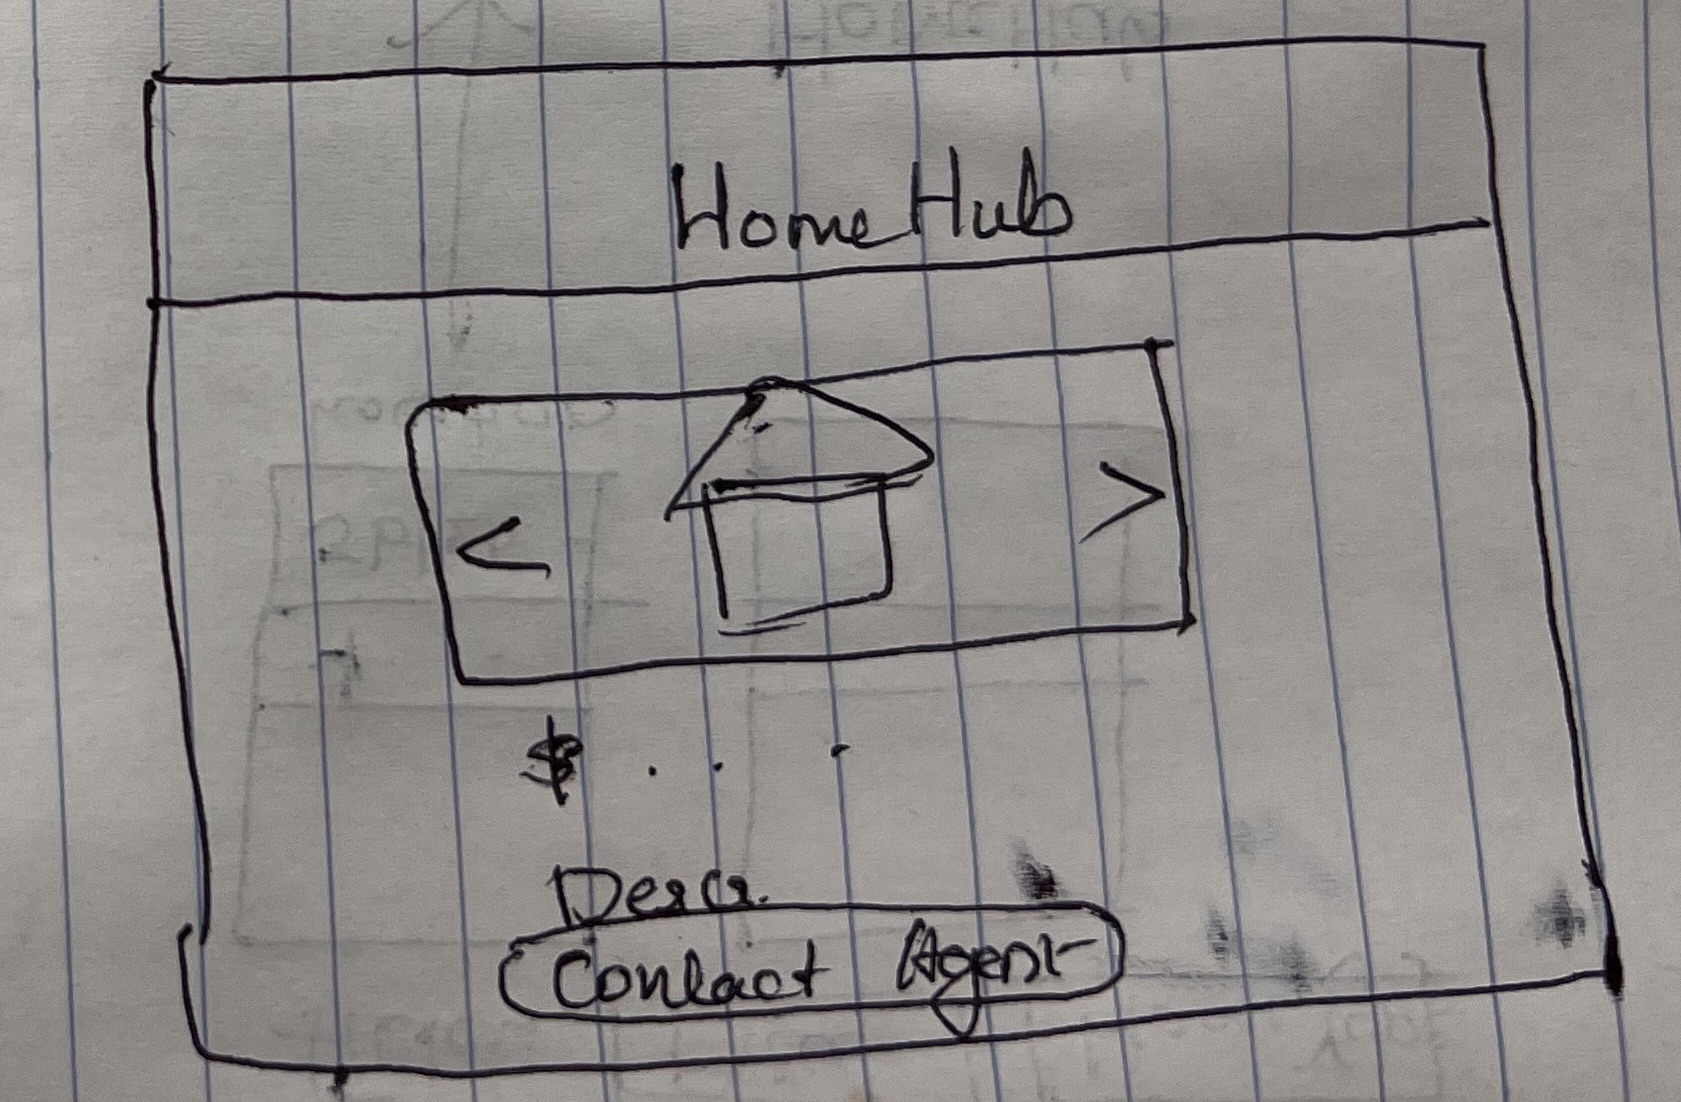 HomeHub
< >
$ . . .
Descr.
Contact Agent